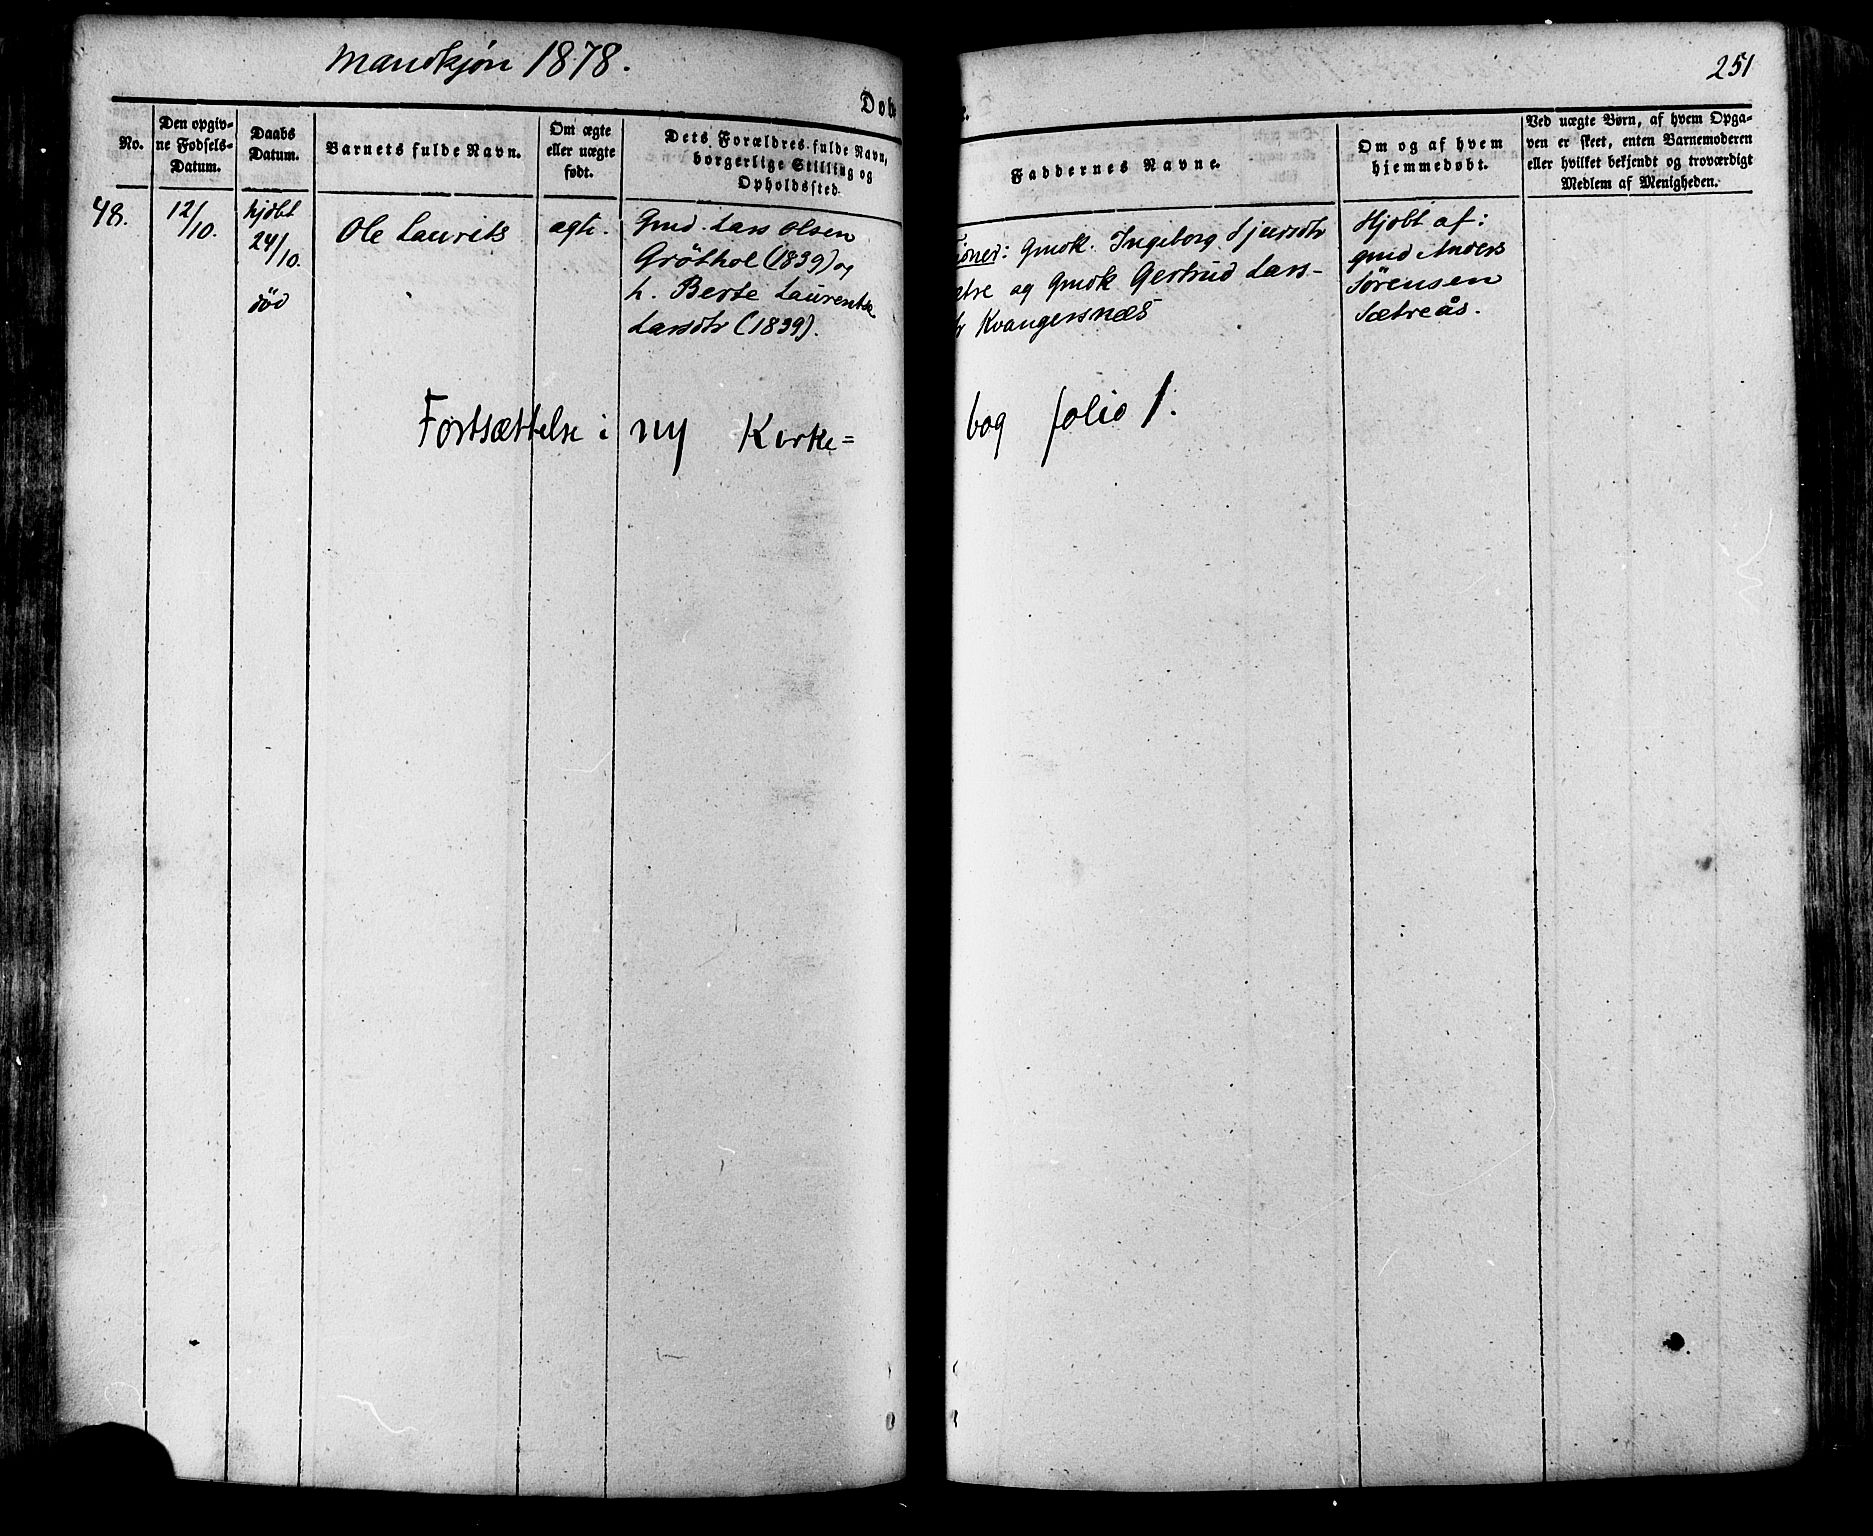 Mandkjøn 1878.
251
Døb
No.
Den opgiv-
ne Fødsels-
Datum.
Daabs
Datum.
Barnets fulde Navn.
Om ægte
eller uægte
født.
Dets Forældres fulde Navn,
borgerlige Stilling og
Opholdssted.
Faddernes Navne.
Om og af hvem
hjemmedøbt.
Ved uægte Børn, af hvem Opga-
ven er skeet, enten Barnemoderen
eller hvilket bekjendt og troværdigt
Medlem af Menigheden.
48.
12/10.
hjdbt
24/10.
død
Ole Laurits
ægte.
Gmd. Lars Olsen
Grøthol (1839) og
h. Berte Laurentse
Larsdtr (1839).
Gmdk. Ingeborg Sjursdtr
og Gmdk Gertrud Lars-
Kvangersnæs
Hjdbt af:
gmd Anders
Sørensen
Sætreås.
Fortsættelse i ny Kirke=
bog folio 1.